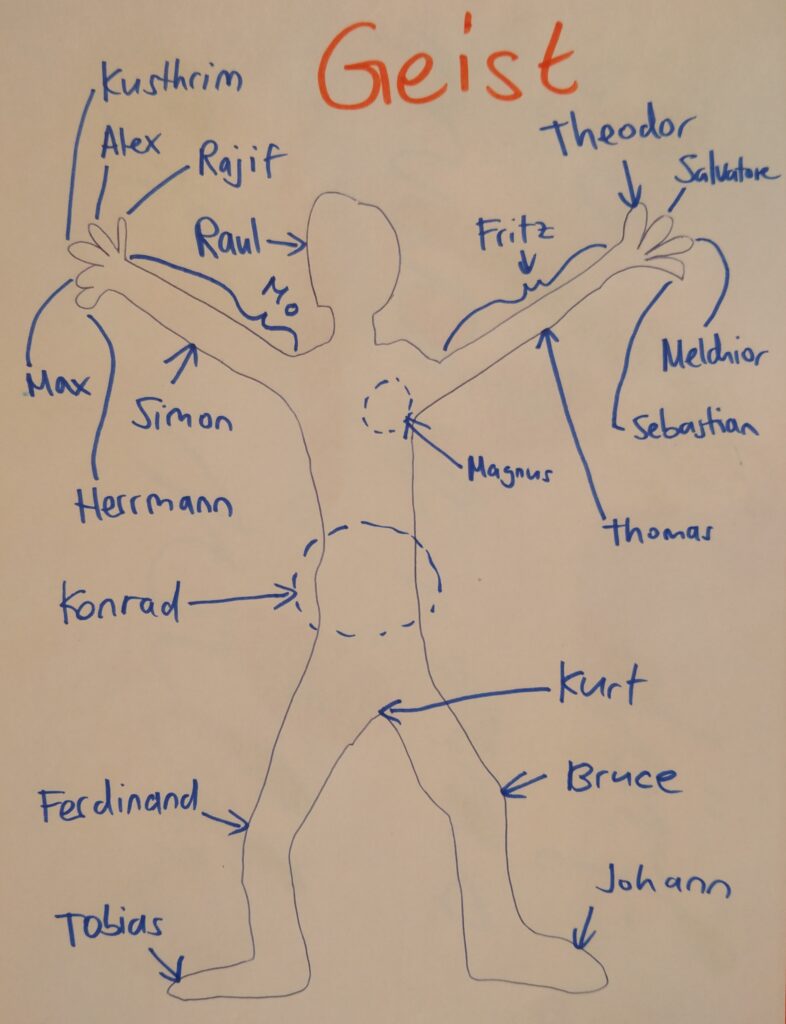 Geist
Kusthrim
Alex
Rajif
Raul
Mo
Max
Simon
Herrmann
Theodor
Salvatore
Fritz
Melchior
Sebastian
Magnus
Thomas
Konrad
Kurt
Bruce
Ferdinand
Johann
Tobias